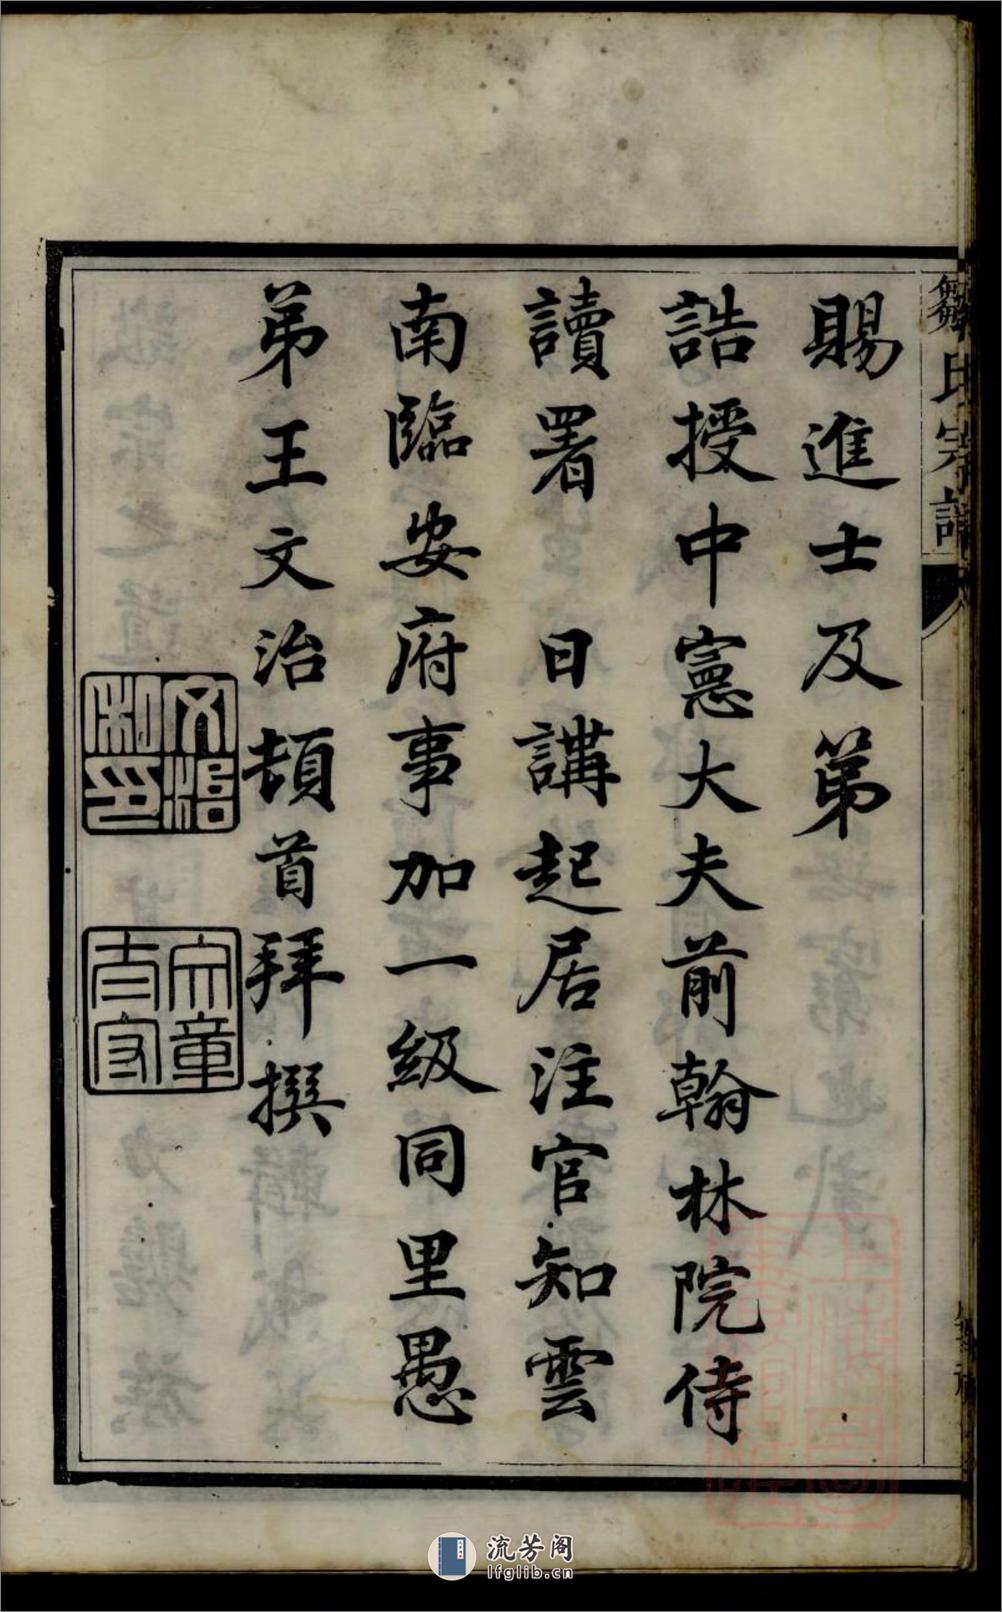 鄒氏宗譜
賜進士及第
誥授中憲大夫前翰林院侍
讀署 日講起居注官知雲
南臨安府事加一級同里愚
弟王文治頓首拜撰
文治
私印
流芳阁
lfglib.cn